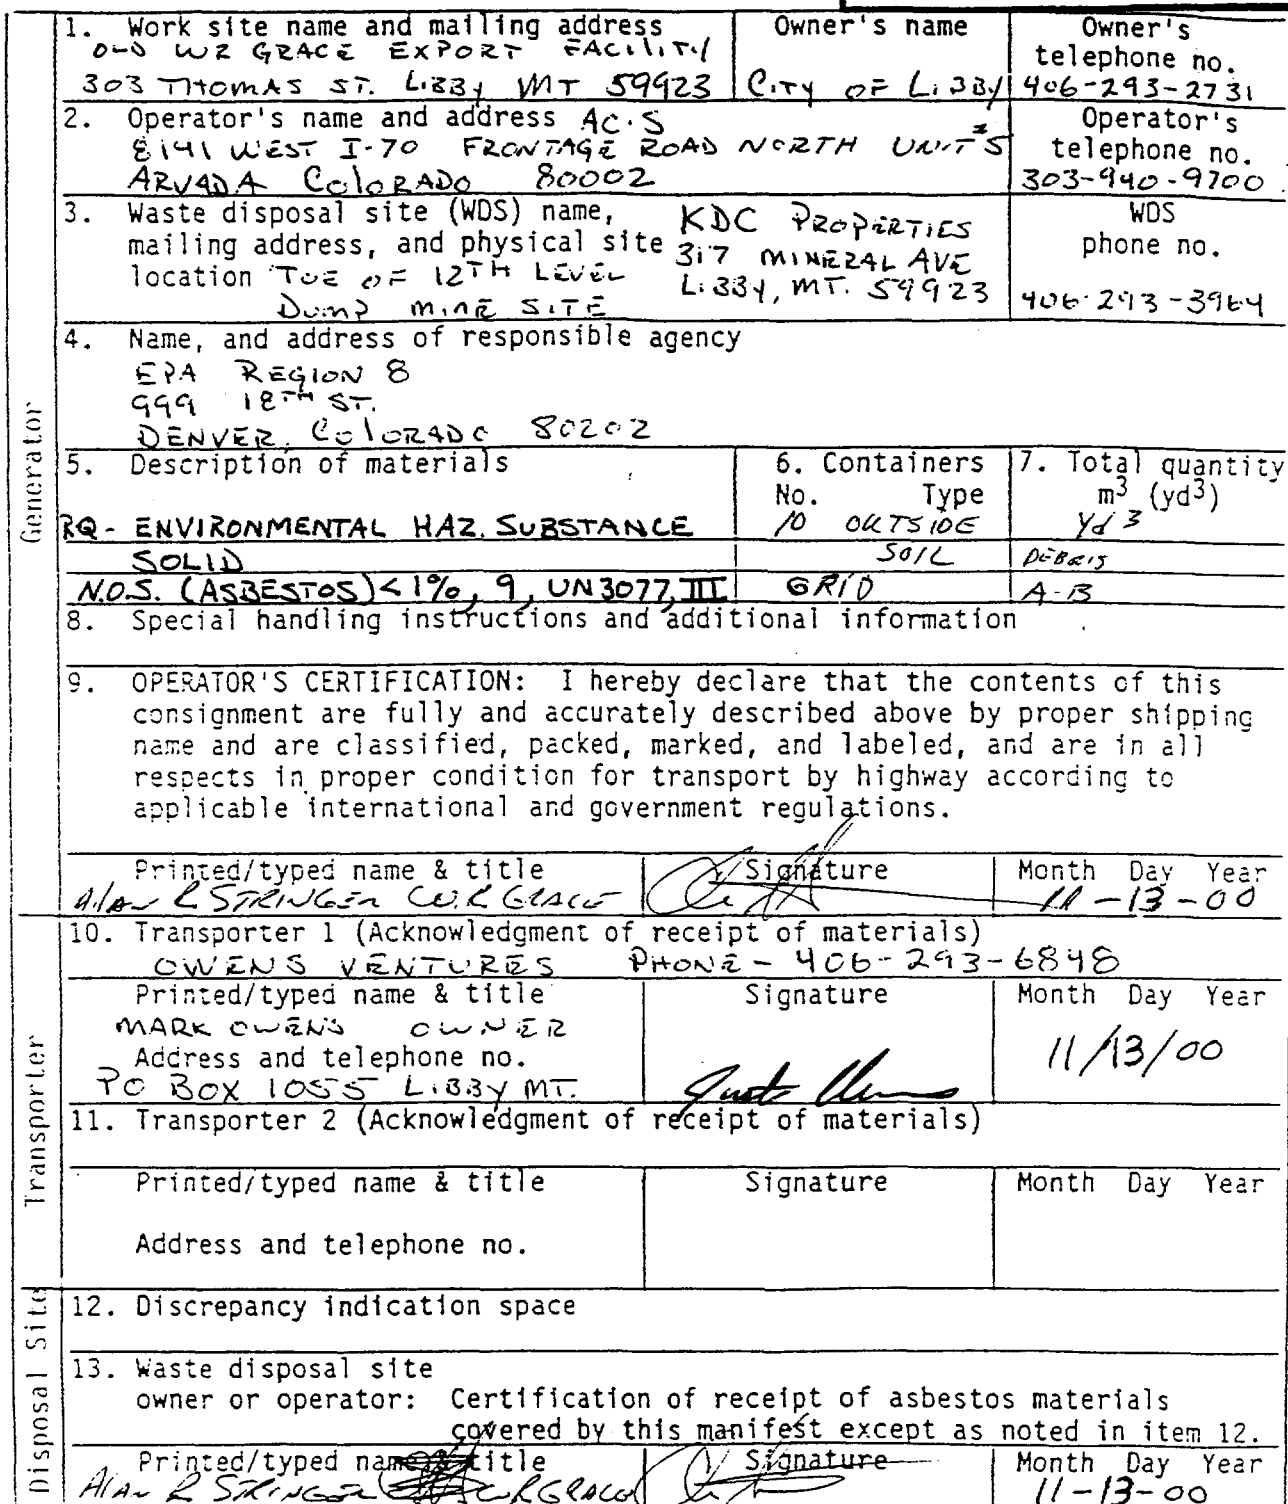 1. Work site name and mailing address
OLD WR GRACE EXPORT FACILITY
303 THOMAS ST. LIBBY MT 59923
Owner's name
CITY OF LIBBY
Owner's
telephone no.
406-293-2731
2. Operator's name and address AC·S
8141 WEST I-70 FRONTAGE ROAD NORTH UNIT #5
ARVADA COLORADO 80002
Operator's
telephone no.
303-940-9700
3. Waste disposal site (WDS) name,
mailing address, and physical site
location TOE OF 12TH LEVEL
DUMP MINE SITE
KDC PROPERTIES
317 MINERAL AVE
LIBBY, MT. 59923
WDS
phone no.
406-293-3964
Generator
4. Name, and address of responsible agency
EPA REGION 8
999 18TH ST.
DENVER, COLORADO 80202
5. Description of materials
6. Containers
No. Type
7. Total quantity
m3 (yd3)
RQ - ENVIRONMENTAL HAZ. SUBSTANCE
10 OUTSIDE
Yd 3
SOLID
SOIL
DEBRIS
N.O.S. (ASBESTOS) <1%, 9, UN3077, III
GRID
A-B
8. Special handling instructions and additional information
9. OPERATOR'S CERTIFICATION: I hereby declare that the contents of this
consignment are fully and accurately described above by proper shipping
name and are classified, packed, marked, and labeled, and are in all
respects in proper condition for transport by highway according to
applicable international and government regulations.
Printed/typed name & title
ALAN R STRINGER W.R GRACE
Signature
Month Day Year
11-13-00
Transporter
10. Transporter 1 (Acknowledgment of receipt of materials)
OWENS VENTURES PHONE - 406-293-6848
Printed/typed name & title
MARK OWENS OWNER
Address and telephone no.
PO BOX 1055 LIBBY MT.
Signature
Month Day Year
11/13/00
11. Transporter 2 (Acknowledgment of receipt of materials)
Printed/typed name & title
Signature
Month Day Year
Address and telephone no.
Disposal Site
12. Discrepancy indication space
13. Waste disposal site
owner or operator: Certification of receipt of asbestos materials
covered by this manifest except as noted in item 12.
Printed/typed name & title
ALAN R STRINGER W R GRACE
Signature
Month Day Year
11-13-00